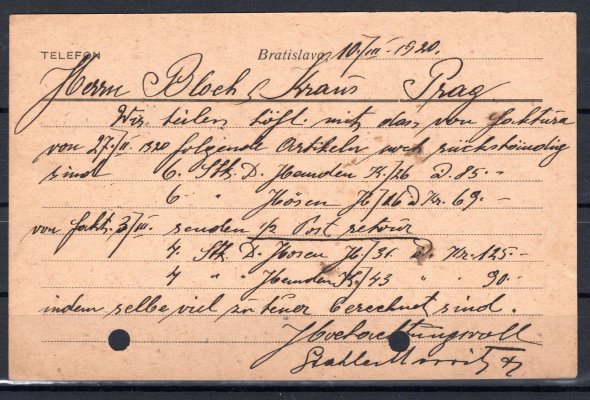 TELEFON
Bratislava 10/III. 1920.
Herrn Bloch & Kraus Prag
Wir teilen höfl. mit, dass von faktura
von 27./II. 1920 folgende Artikeln noch rückständig
sind 6. Stk. D. Hemden K./26 à 85.–
6 " " Hosen H/26 à Kr. 69.–
von fakt. 3/III. senden p Post retour
4. Stk D. Hosen H/31. à Kr. 125.–
4 " " Hemden K./43 " " 90.–
indem selbe viel zu teuer berechnet sind.
Hochachtungsvoll
Moritz